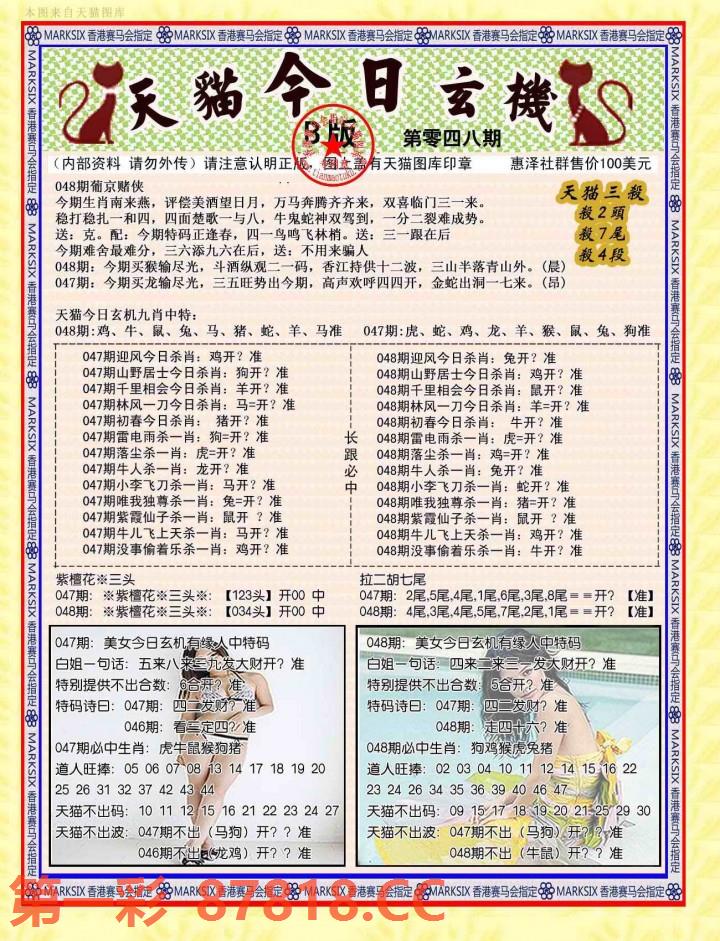 本图来自天猫图库
MARKSIX 香港赛马会指定 MARKSIX 香港赛马会指定 MARKSIX 香港赛马会指定 MARKSIX 香港赛马会指定 MARKSIX 香港赛马会指定
天貓今日玄機
B版
第零四八期
(内部资料 请勿外传) 请注意认明正版，图上盖有天猫图库印章 惠泽社群售价100美元
048期葡京赌侠
今期生肖南来燕，评偿美酒望日月，万马奔腾齐齐来，双喜临门三一来。
稳打稳扎一和四，四面楚歌一与八，牛鬼蛇神双驾到，一分二裂难成势。
送：克。配：今期特码正逢春，四一鸟鸣飞林梢。送：三一跟在后
今期难舍最难分，三六添九六在后，送：不用来骗人
048期：今期买猴输尽光，斗酒纵观二一码，香江持供十二波，三山半落青山外。(晨)
047期：今期买龙输尽光，三五旺势出今期，高声欢呼四四开，金蛇出洞一七来。(昂)
天猫三殺
殺2頭
殺7尾
殺4段
天猫今日玄机九肖中特：
048期:鸡、牛、鼠、兔、马、猪、蛇、羊、马准 047期:虎、蛇、鸡、龙、羊、猴、鼠、兔、狗准
047期迎风今日杀肖：鸡开？准
047期山野居士今日杀肖：狗开？准
047期千里相会今日杀肖：羊开？准
047期林风一刀今日杀肖：马=开？准
047期初春今日杀肖： 猪开？准
047期雷电雨杀一肖：狗=开？准
047期落尘杀一肖：虎=开？准
047期牛人杀一肖：龙开？准
047期小李飞刀杀一肖：马开？准
047期唯我独尊杀一肖：兔=开？准
047期紫霞仙子杀一肖：鼠开 ？准
047期牛儿飞上天杀一肖：马开？准
047期没事偷着乐杀一肖：鸡开？准
长跟必中
048期迎风今日杀肖：兔开？准
048期山野居士今日杀肖：鸡开？准
048期千里相会今日杀肖：鼠开？准
048期林风一刀今日杀肖：羊=开？准
048期初春今日杀肖： 牛开？准
048期雷电雨杀一肖：虎=开？准
048期落尘杀一肖：鸡=开？准
048期牛人杀一肖：兔开？准
048期小李飞刀杀一肖：蛇开？准
048期唯我独尊杀一肖：猪=开？准
048期紫霞仙子杀一肖：鼠开 ？准
048期牛儿飞上天杀一肖：鸡开？准
048期没事偷着乐杀一肖：牛开？准
紫檀花※三头
047期：※紫檀花※三头※：【123头】开00 中
048期：※紫檀花※三头※：【034头】开00 中
拉二胡七尾
047期：2尾,5尾,4尾,1尾,6尾,3尾,8尾＝＝开？【准】
048期：4尾,3尾,4尾,5尾,7尾,2尾,1尾＝＝开？【准】
047期：美女今日玄机有缘人中特码
白姐一句话：五来八来三九发大财开？准
特别提供不出合数：6合开？准
特码诗曰：047期：四二发财？准
046期：看三定四？准
047期必中生肖：虎牛鼠猴狗猪
道人旺捧：05 06 07 08 13 14 17 18 19 20
25 26 31 32 37 42 43 44
天猫不出码：10 11 12 15 16 21 22 23 24 27
天猫不出波：047期不出（马狗）开？？准
046期不出（龙鸡）开？？准
048期：美女今日玄机有缘人中特码
白姐一句话：四来二来三一发大财开？准
特别提供不出合数：5合开？准
特码诗曰：047期：四二发财？准
048期：走四十六？准
048期必中生肖：狗鸡猴虎兔猪
道人旺捧：02 03 04 10 11 12 14 15 16 22
23 24 26 34 35 36 39 40 46 47
天猫不出码：09 15 17 18 19 20 21 25 29 30
天猫不出波：047期不出（马狗）开？？准
048期不出（牛鼠）开？？准
MARKSIX 香港赛马会指定 MARKSIX 香港赛马会指定 MARKSIX 香港赛马会指定 MARKSIX 香港赛马会指定 MARKSIX 香港赛马会指定
第一彩 87818.CC